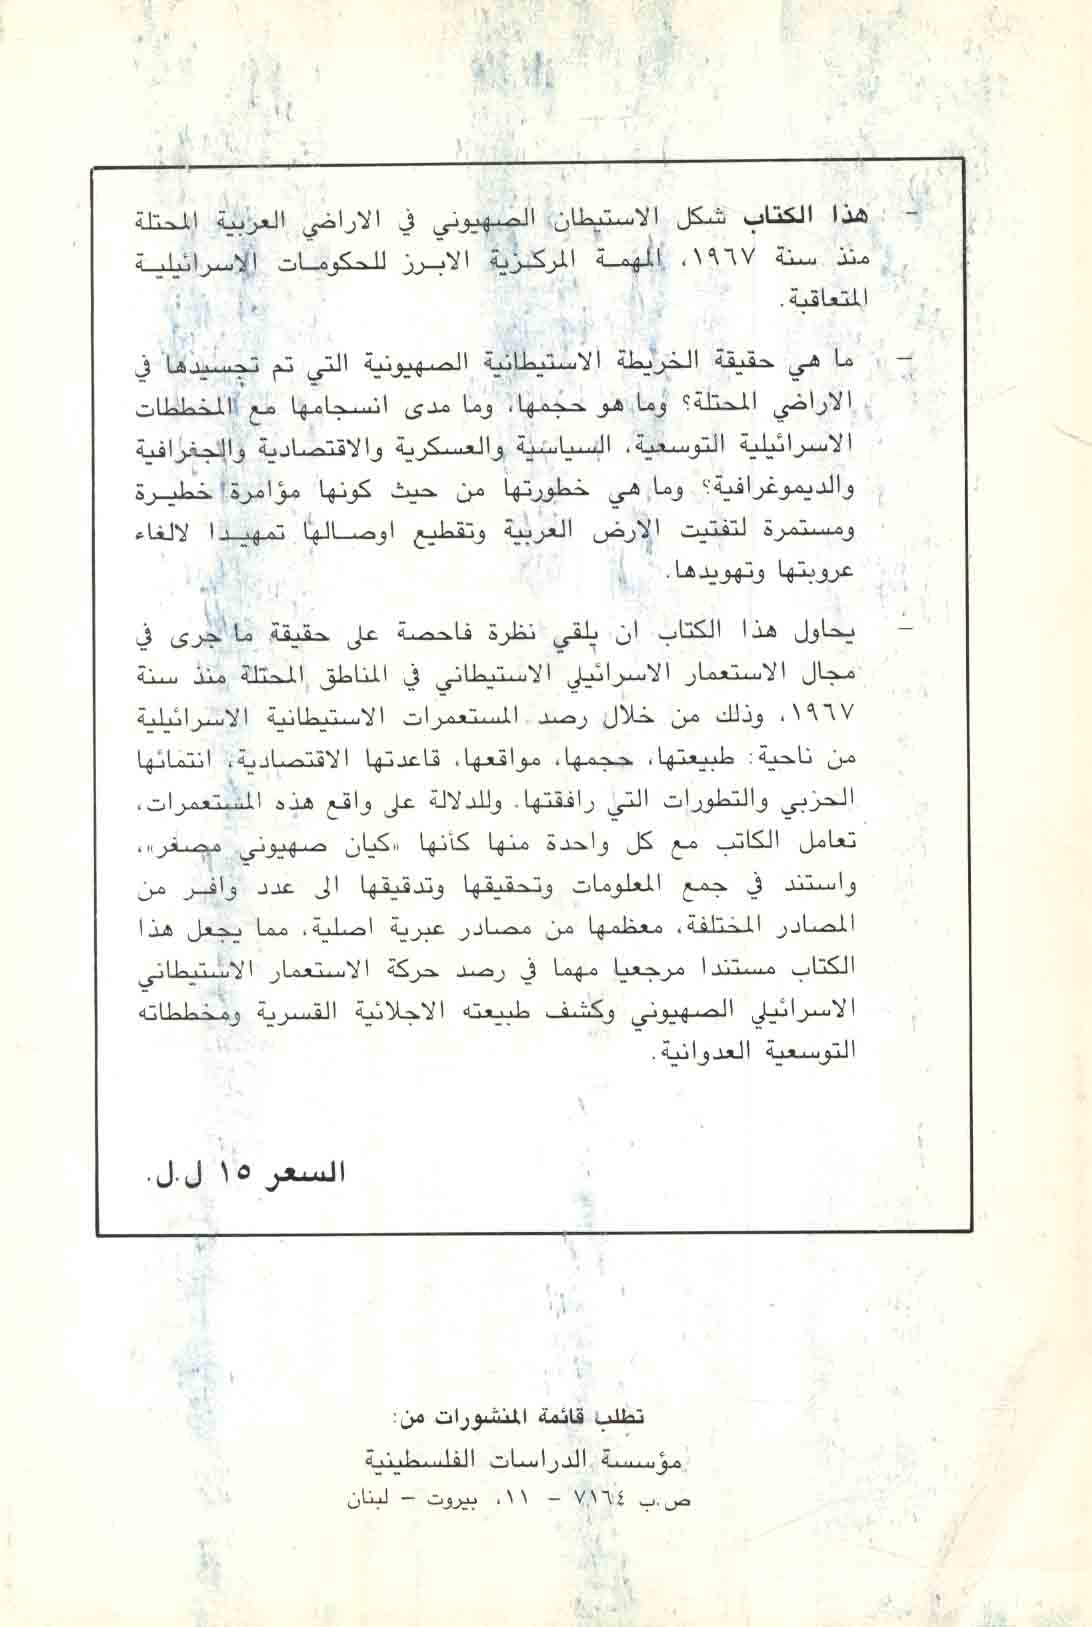 - هذا الكتاب شكل الاستيطان الصهيوني في الاراضي العربية المحتلة
منذ سنة ١٩٦٧، المهمة المركزية الابرز للحكومات الاسرائيلية
المتعاقبة.
- ما هي حقيقة الخريطة الاستيطانية الصهيونية التي تم تجسيدها في
الاراضي المحتلة؟ وما هو حجمها، وما مدى انسجامها مع المخططات
الاسرائيلية التوسعية، السياسية والعسكرية والاقتصادية والجغرافية
والديموغرافية؟ وما هي خطورتها من حيث كونها مؤامرة خطيرة
ومستمرة لتفتيت الارض العربية وتقطيع اوصالها تمهيدا لالغاء
عروبتها وتهويدها.
- يحاول هذا الكتاب ان يلقي نظرة فاحصة على حقيقة ما جرى في
مجال الاستعمار الاسرائيلي الاستيطاني في المناطق المحتلة منذ سنة
١٩٦٧، وذلك من خلال رصد المستعمرات الاستيطانية الاسرائيلية
من ناحية: طبيعتها، حجمها، مواقعها، قاعدتها الاقتصادية، انتمائها
الحزبي والتطورات التي رافقتها. وللدلالة على واقع هذه المستعمرات،
تعامل الكاتب مع كل واحدة منها كأنها «كيان صهيوني مصغر»،
واستند في جمع المعلومات وتحقيقها وتدقيقها الى عدد وافر من
المصادر المختلفة، معظمها من مصادر عبرية اصلية، مما يجعل هذا
الكتاب مستندا مرجعيا مهما في رصد حركة الاستعمار الاستيطاني
الاسرائيلي الصهيوني وكشف طبيعته الاجلائية القسرية ومخططاته
التوسعية العدوانية.
السعر ١٥ ل.ل.
تطلب قائمة المنشورات من:
مؤسسة الدراسات الفلسطينية
ص.ب ٧١٦٤ - ١١، بيروت - لبنان